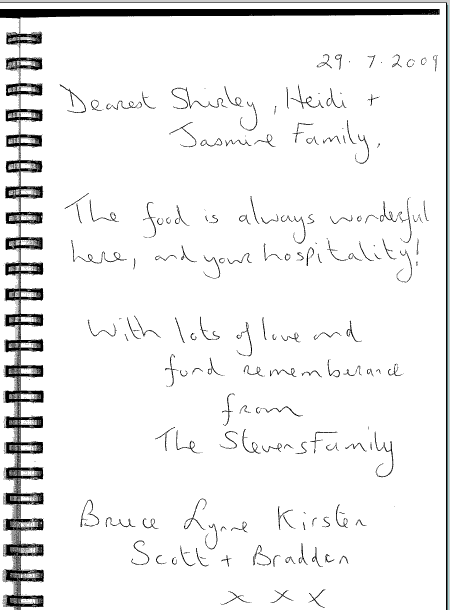 29. 7. 2009
Dearest Shirley, Heidi +
Jasmine Family,
The food is always wonderful
here, and your hospitality!
With lots of love and
fond rememberance
from
The Stevens Family
Bruce Lynne Kirsten
Scott + Bradden
x x x